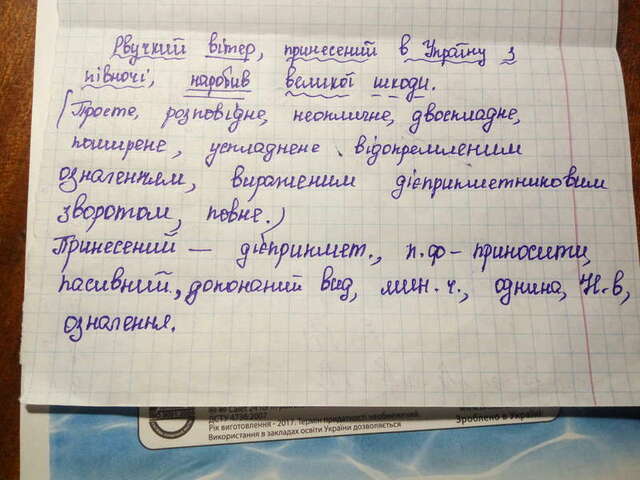 Рвучкий вітер, принесений в Україну з
півночі, наробив великої шкоди.
(Просте, розповідне, неоплигне, двоспладне,
поширене, успладнене відопремленим
означенням, вираженим дієприкметниковим
зворотом, повне.)
Принесений — дієприкмет., п.ф – приносити,
пасивний, допонаний вид, мин. ч., однина, Н.в,
означення.
ДСТУ 4736:2007
Рік виготовлення - 2017. Термін придатності необмежений
Використання в закладах освіти України дозволяється
Зроблено в Україні